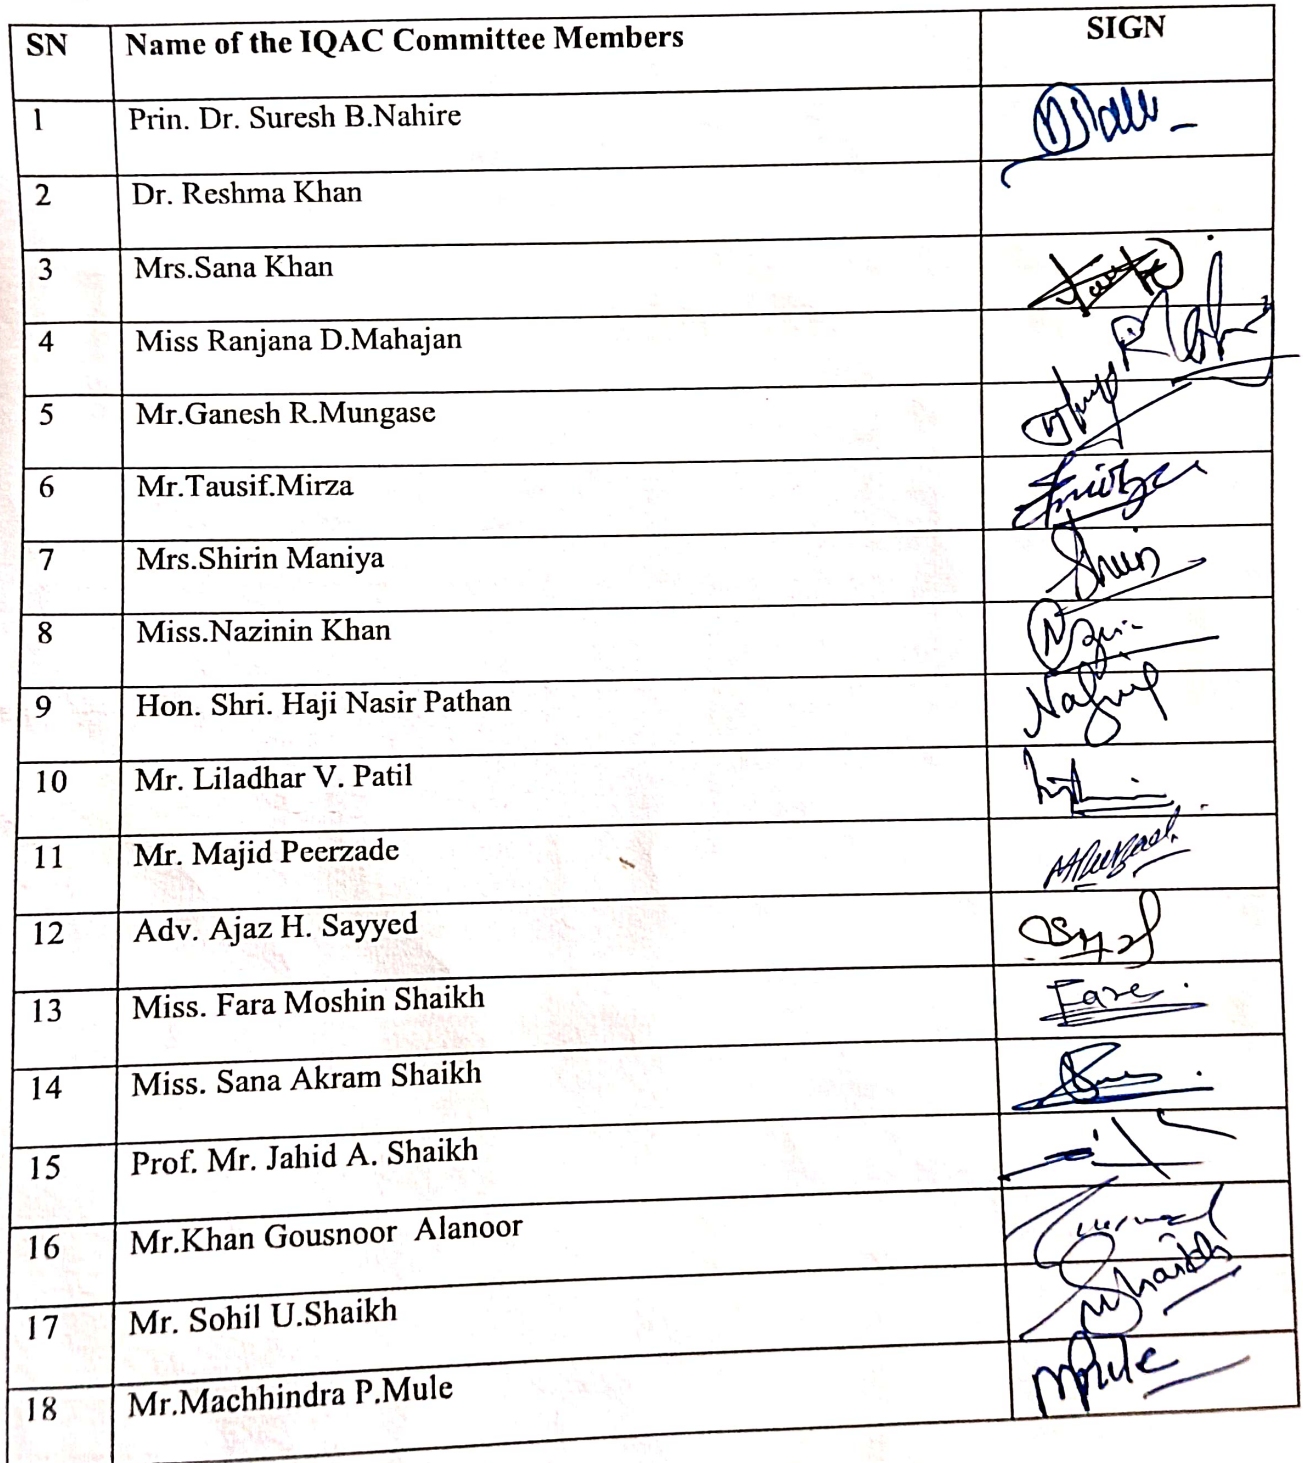 SN Name of the IQAC Committee Members SIGN
1 Prin. Dr. Suresh B.Nahire
2 Dr. Reshma Khan
3 Mrs.Sana Khan
4 Miss Ranjana D.Mahajan
5 Mr.Ganesh R.Mungase
6 Mr.Tausif.Mirza
7 Mrs.Shirin Maniya
8 Miss.Nazinin Khan
9 Hon. Shri. Haji Nasir Pathan
10 Mr. Liladhar V. Patil
11 Mr. Majid Peerzade
12 Adv. Ajaz H. Sayyed
13 Miss. Fara Moshin Shaikh
14 Miss. Sana Akram Shaikh
15 Prof. Mr. Jahid A. Shaikh
16 Mr.Khan Gousnoor Alanoor
17 Mr. Sohil U.Shaikh Shaikh
18 Mr.Machhindra P.Mule